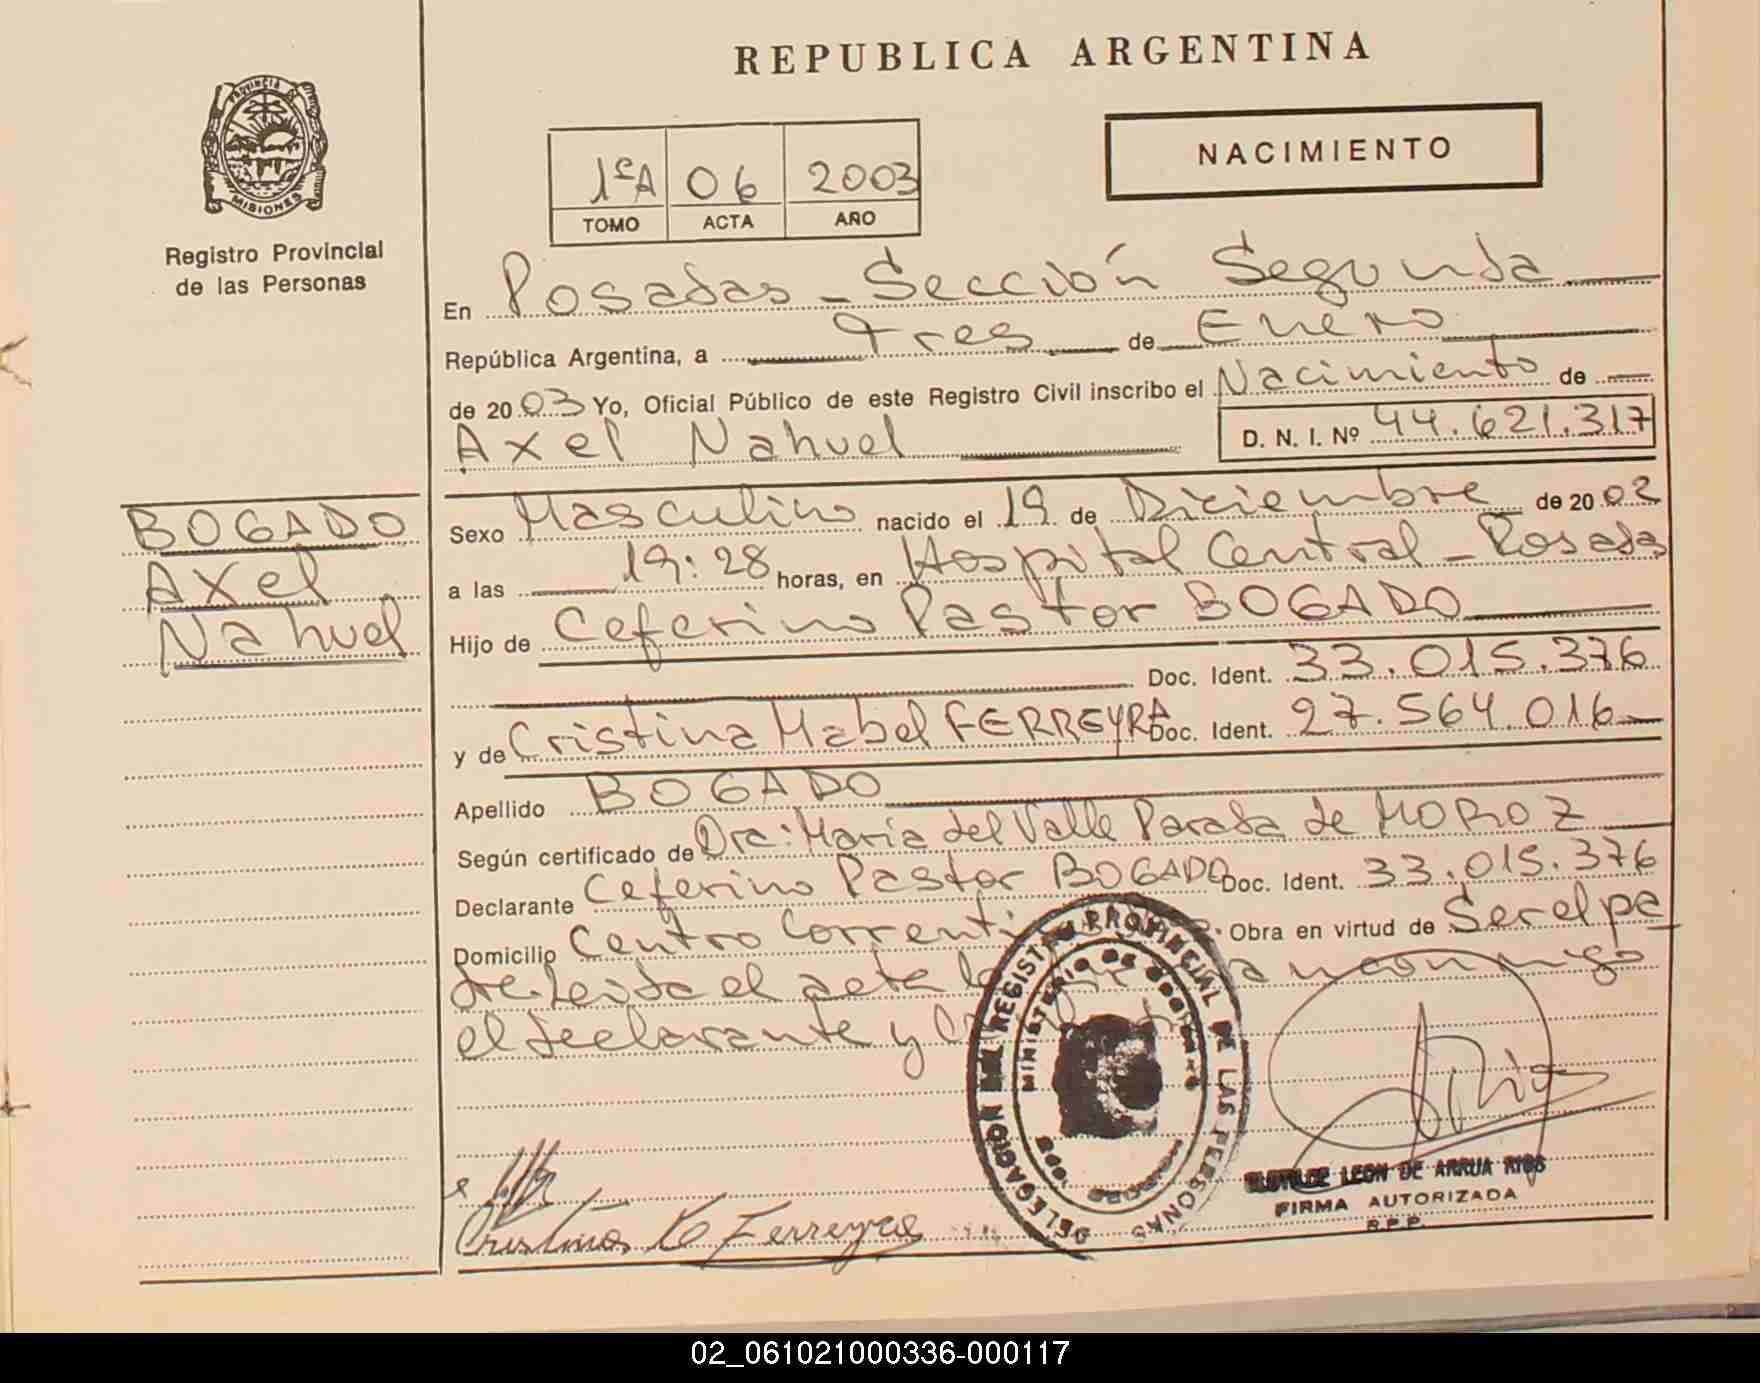 REPUBLICA ARGENTINA
PROVINCIA DE
MISIONES
Registro Provincial
de las Personas
NACIMIENTO
1ºA 06 2003
TOMO ACTA AÑO
En Posadas - Sección Segunda
República Argentina, a Tres de Enero
de 2003 Yo, Oficial Público de este Registro Civil inscribo el Nacimiento de
Axel Nahuel D. N. I. Nº 44.621.317
BOGADO
Axel
Nahuel
Sexo Masculino nacido el 19 de Diciembre de 2002
a las 19:28 horas, en Hospital Central - Posadas
Hijo de Ceferino Pastor BOGADO
Doc. Ident. 33.015.376
y de Cristina Mabel FERREYRA Doc. Ident. 27.564.016
Apellido BOGADO
Según certificado de Dra: María del Valle Parada de MOROZ
Declarante Ceferino Pastor BOGADO Doc. Ident. 33.015.376
Domicilio Centro Obra en virtud de Ser el pa
dre. Leída el acta la
el declarante y
DELEGACION DEL REGISTRO PROVINCIAL DE LAS PERSONAS
MINISTERIO DE GOBIERNO
LEON DE ARRUA RIOS
FIRMA AUTORIZADA
R.P.P.
Cristina Ferreyra
02_061021000336-000117